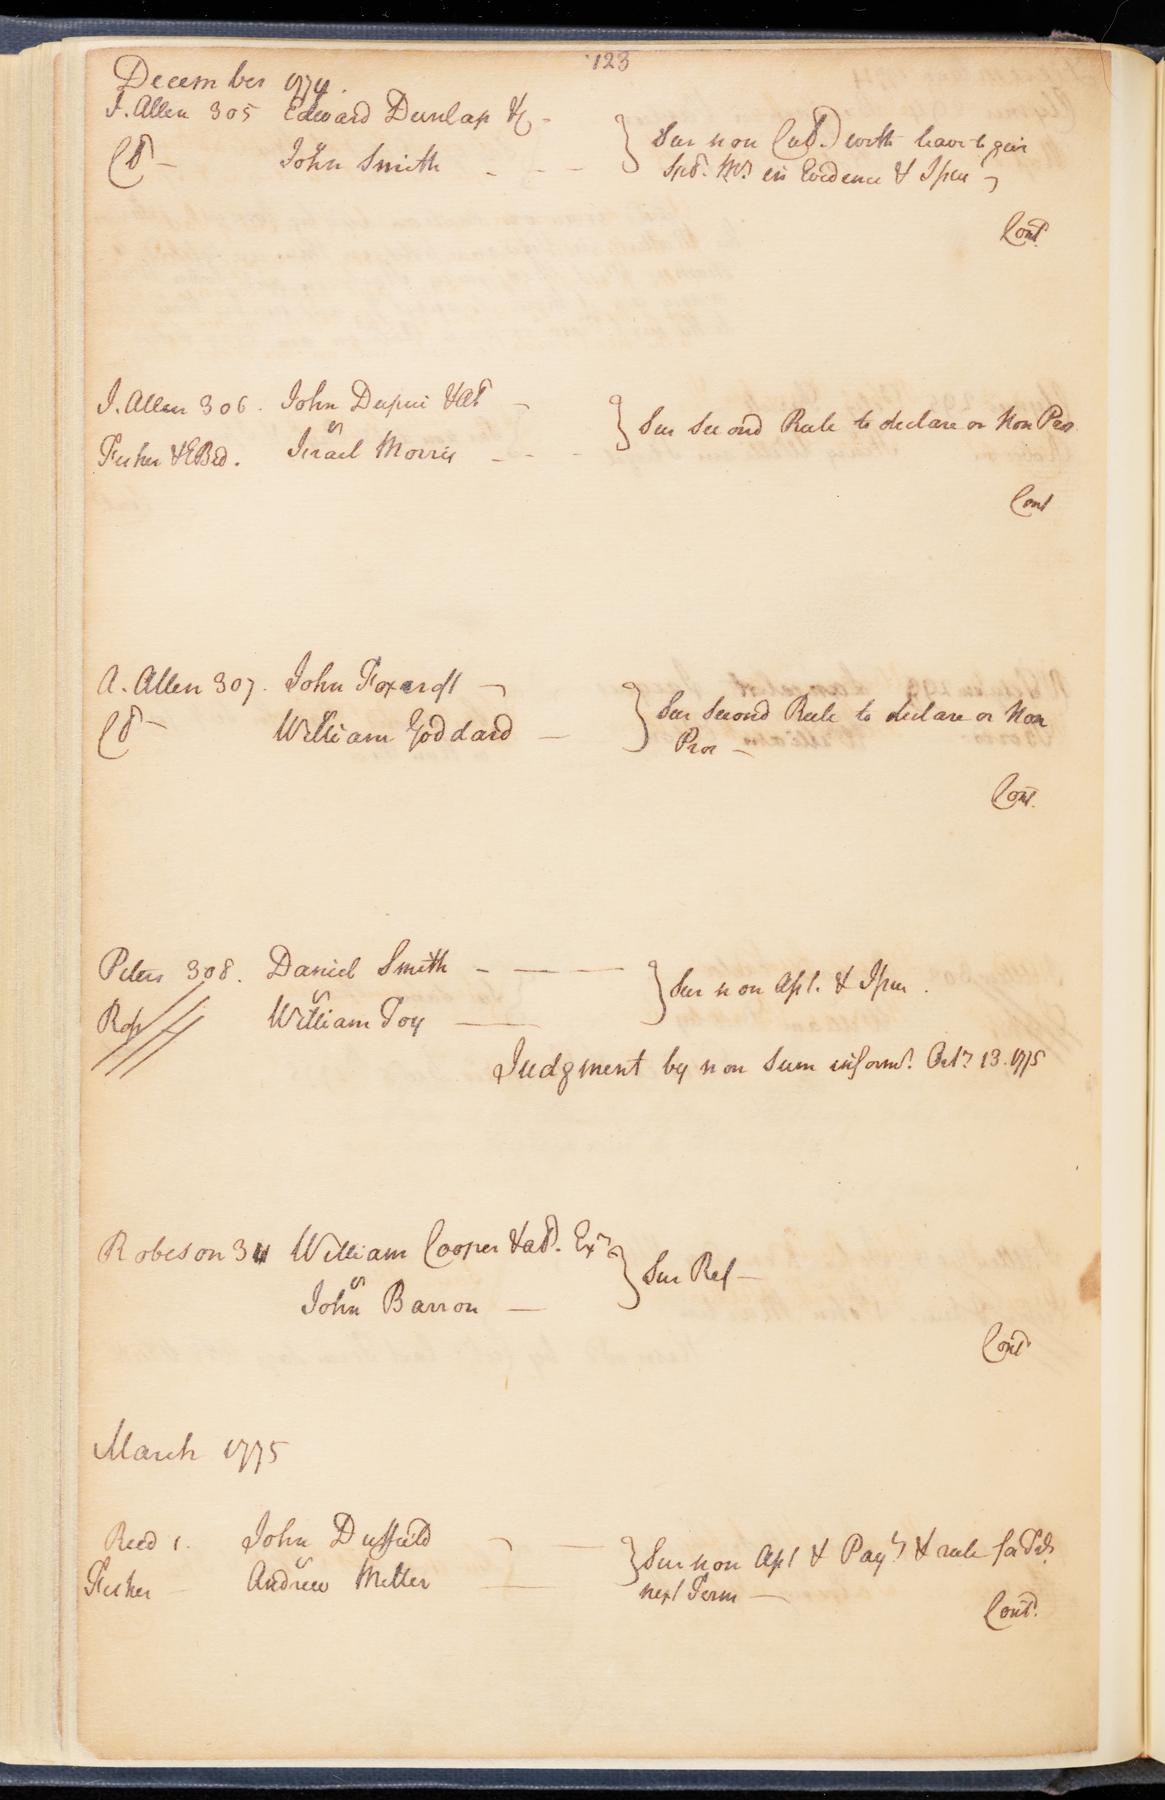 123
December 1774.
J. Allen 305 Edward Dunlap &c -
vs
John Smith - - -
Sur non Cul.) with leave to give
Spl. Mr. in Evidence & Issue
Cont.
J. Allen 306. John Dupui & al -
vs
Fisher & EBid. Israel Morris - - -
Sur Second Rule to declare or Non Pros
Cont
A. Allen 307. John Foxcroft -
William Goddard -
Sur Second Rule to declare or Non
Pros -
Cont.
Peters 308. Daniel Smith - - -
vs
Ross William Toy -
Sur non Ast. & Issue.
Judgment by non Sum informs. Octr. 13. 1775
Robeson 311 William Cooper & al. Exrs
vs
John Barron -
Sur Ref -
Cont
March 1775
Reed 1. John Duffield -
vs
Fisher - Andrew Miller -
Sur non Ast & Payt & rule
next Term -
Cont.